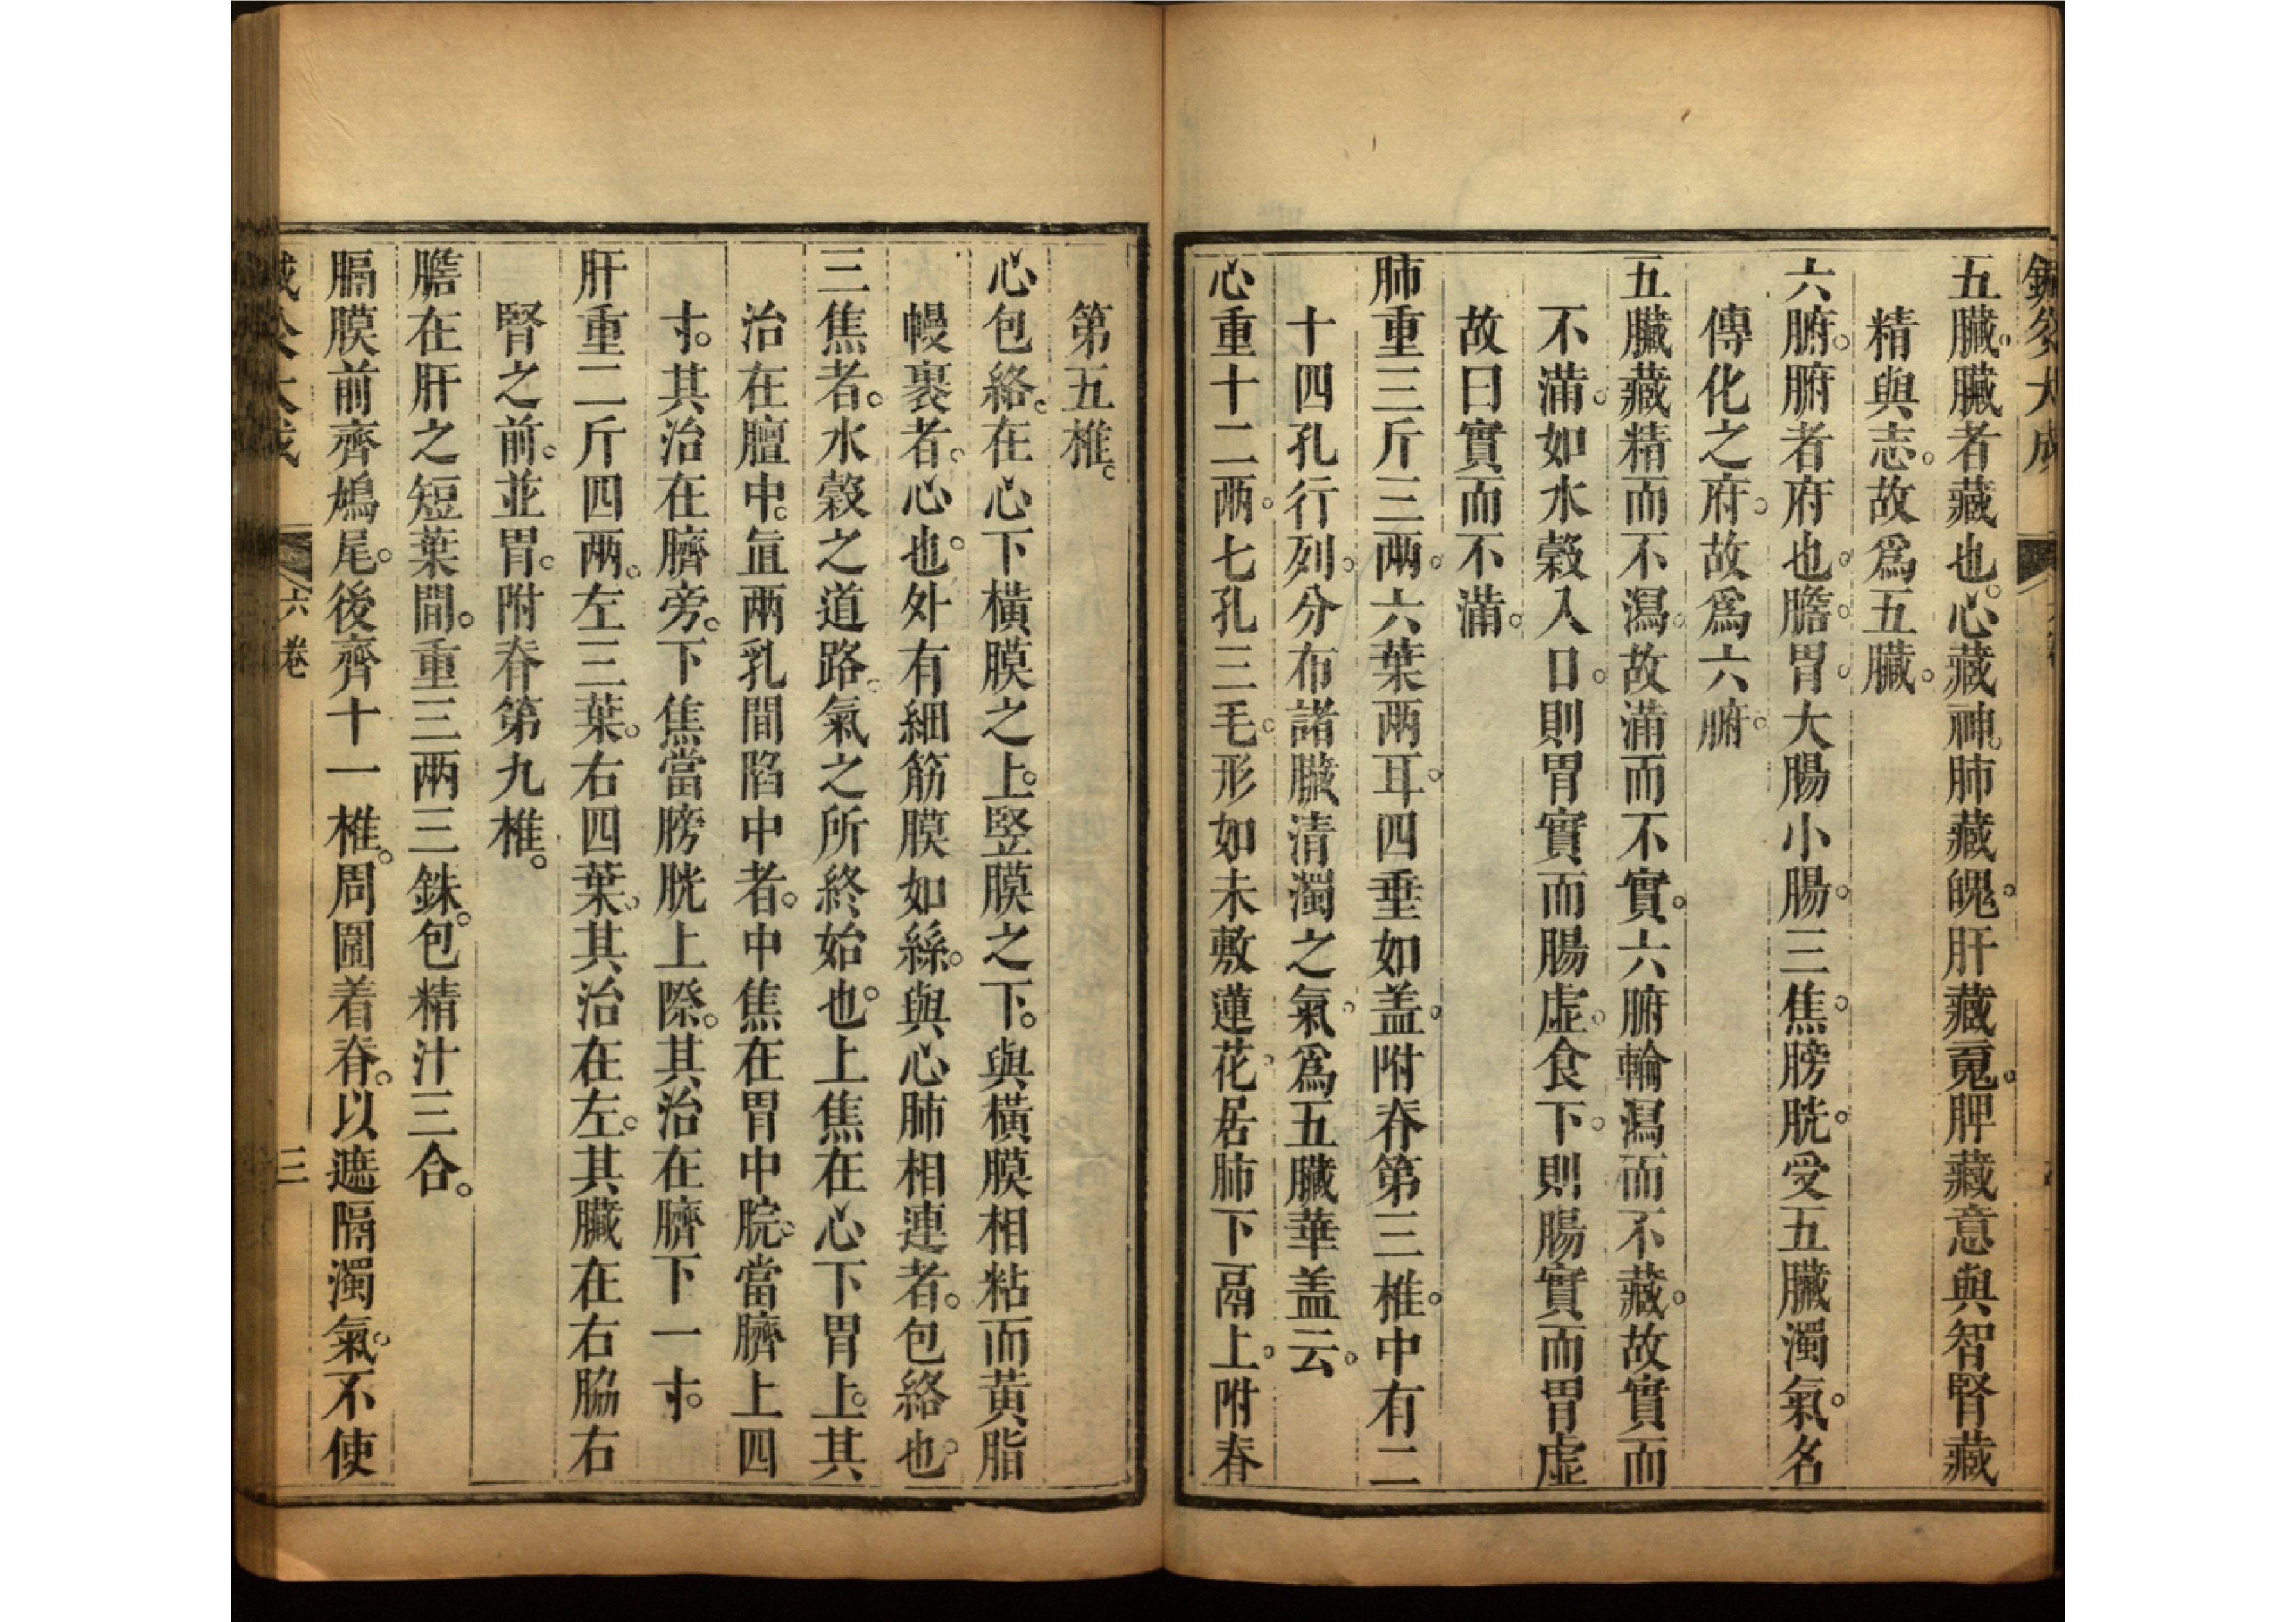 鍼灸大成
五臟。臟者藏也。心藏神。肺藏魄。肝藏䰟。脾藏意與智腎藏
精與志。故爲五臟。
六腑。腑者府也。膽。胃。大腸小腸。三焦。膀胱。受五臟濁氣。名
傳化之府。故爲六腑。
五臟藏精而不瀉。故滿而不實。六腑輸瀉而不藏。故實而
不滿。如水穀入口。則胃實而腸虛。食下。則腸實而胃虛
故曰實而不滿。
肺重三斤三兩。六葉兩耳。四垂如盖。附脊第三椎。中有二
十四孔行列。分布諸臟清濁之氣。爲五臟華盖云。
心重十二兩。七孔三毛。形如未敷蓮花。居肺下鬲上。附脊
第五椎。
心包絡。在心下橫膜之上。竪膜之下。與橫膜相粘而黃脂
幔裹者。心也。外有細筋膜如絲。與心肺相連者。包絡也。
三焦者。水穀之道路。氣之所終始也。上焦在心下胃上。其
治在膻中。直兩乳間陷中者。中焦在胃中脘。當臍上四
寸。其治在臍旁。下焦當膀胱上際。其治在臍下一寸。
肝重二斤四兩。左三葉。右四葉。其治在左。其臟在右脇右
腎之前。並胃。附脊第九椎。
膽在肝之短葉間。重三兩三銖。包精汁三合。
膈膜前齊鳩尾。後齊十一椎。周圍着脊。以遮隔濁氣。不使
六卷
三